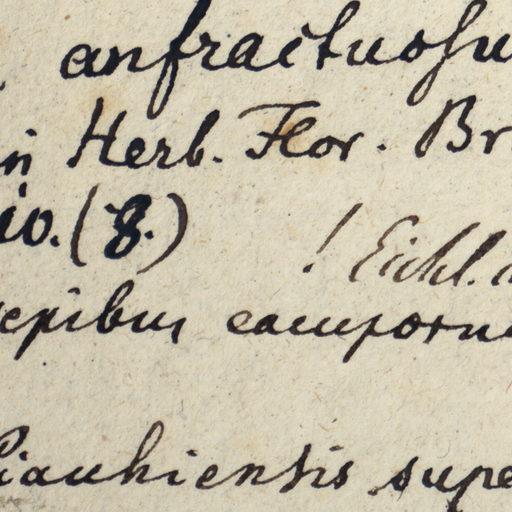 anfractuosu
in Herb. Flor. Br
io. (8.)
! Eichl.
sepibus camporum
Piauhiensis supe